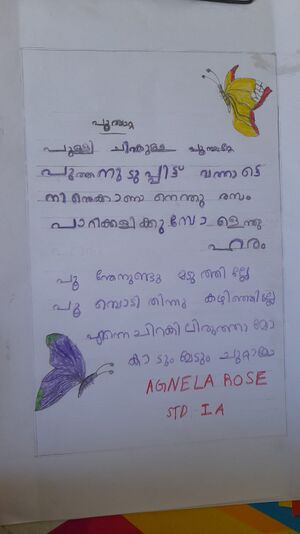 പൂമ്പാറ്റ
പുള്ളി ചിറകുള്ള പൂമ്പാറ്റേ
പുത്തനുടുപ്പിട്ട് വന്നാട്ടെ
നിന്നെക്കാണാനെന്തു രസം
പാറിക്കളിക്കുമ്പോളെന്തു
ഹരം
പൂന്തേനുണ്ടു മടുത്തില്ലേ
പൂമ്പൊടി തിന്നു കഴിഞ്ഞില്ലേ
എന്നെ ചിറകിലിരുത്താമോ
കാടും മേടും ചുറ്റാമോ
AGNELA ROSE
STD IA